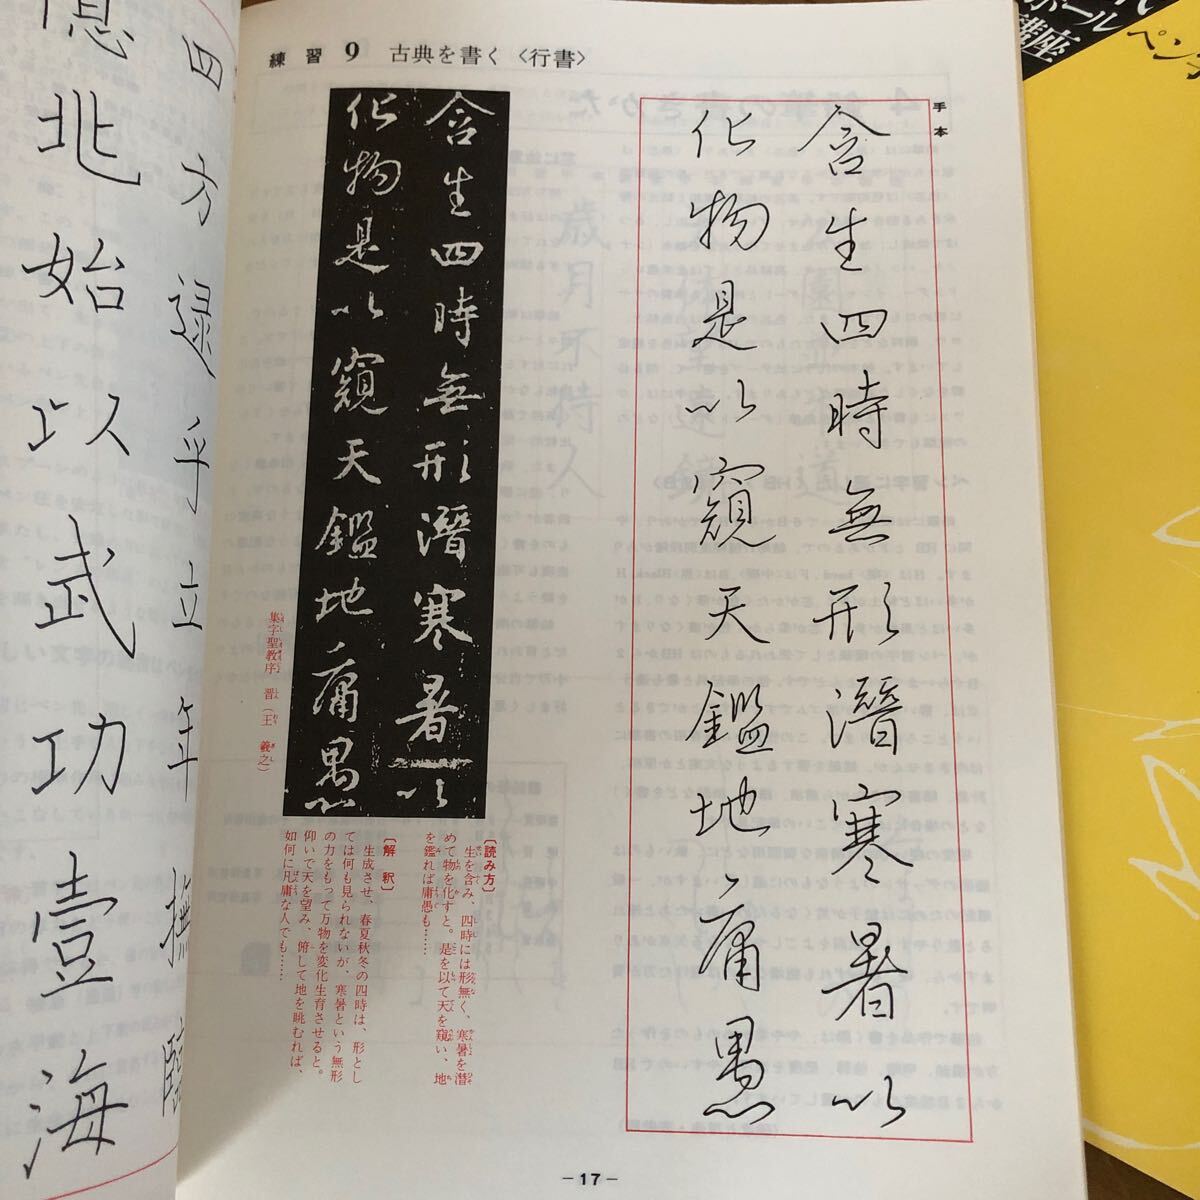 練習 9 古典を書く〈行書〉
手本
含生四時無形潛寒暑以
化物是以窺天鑑地庸愚
含生四時無形潛寒暑以
化物是以窺天鑑地庸愚
集字聖教序 晋（王羲之）
〔読み方〕
生を含み、四時には形無く、寒暑を潛
めて物を化すと。是を以て天を窺い、地
を鑑れば庸愚も……
〔解釈〕
生成させ、春夏秋冬の四時は、形とし
ては何も見られないが、寒暑という無形
の力をもって万物を変化生育させると。
仰いで天を望み、俯して地を眺むれば、
如何に凡庸な人でも……
－17－
四方逮乎立年撫臨
億兆始以武功壹海
ボール
ペン
講座